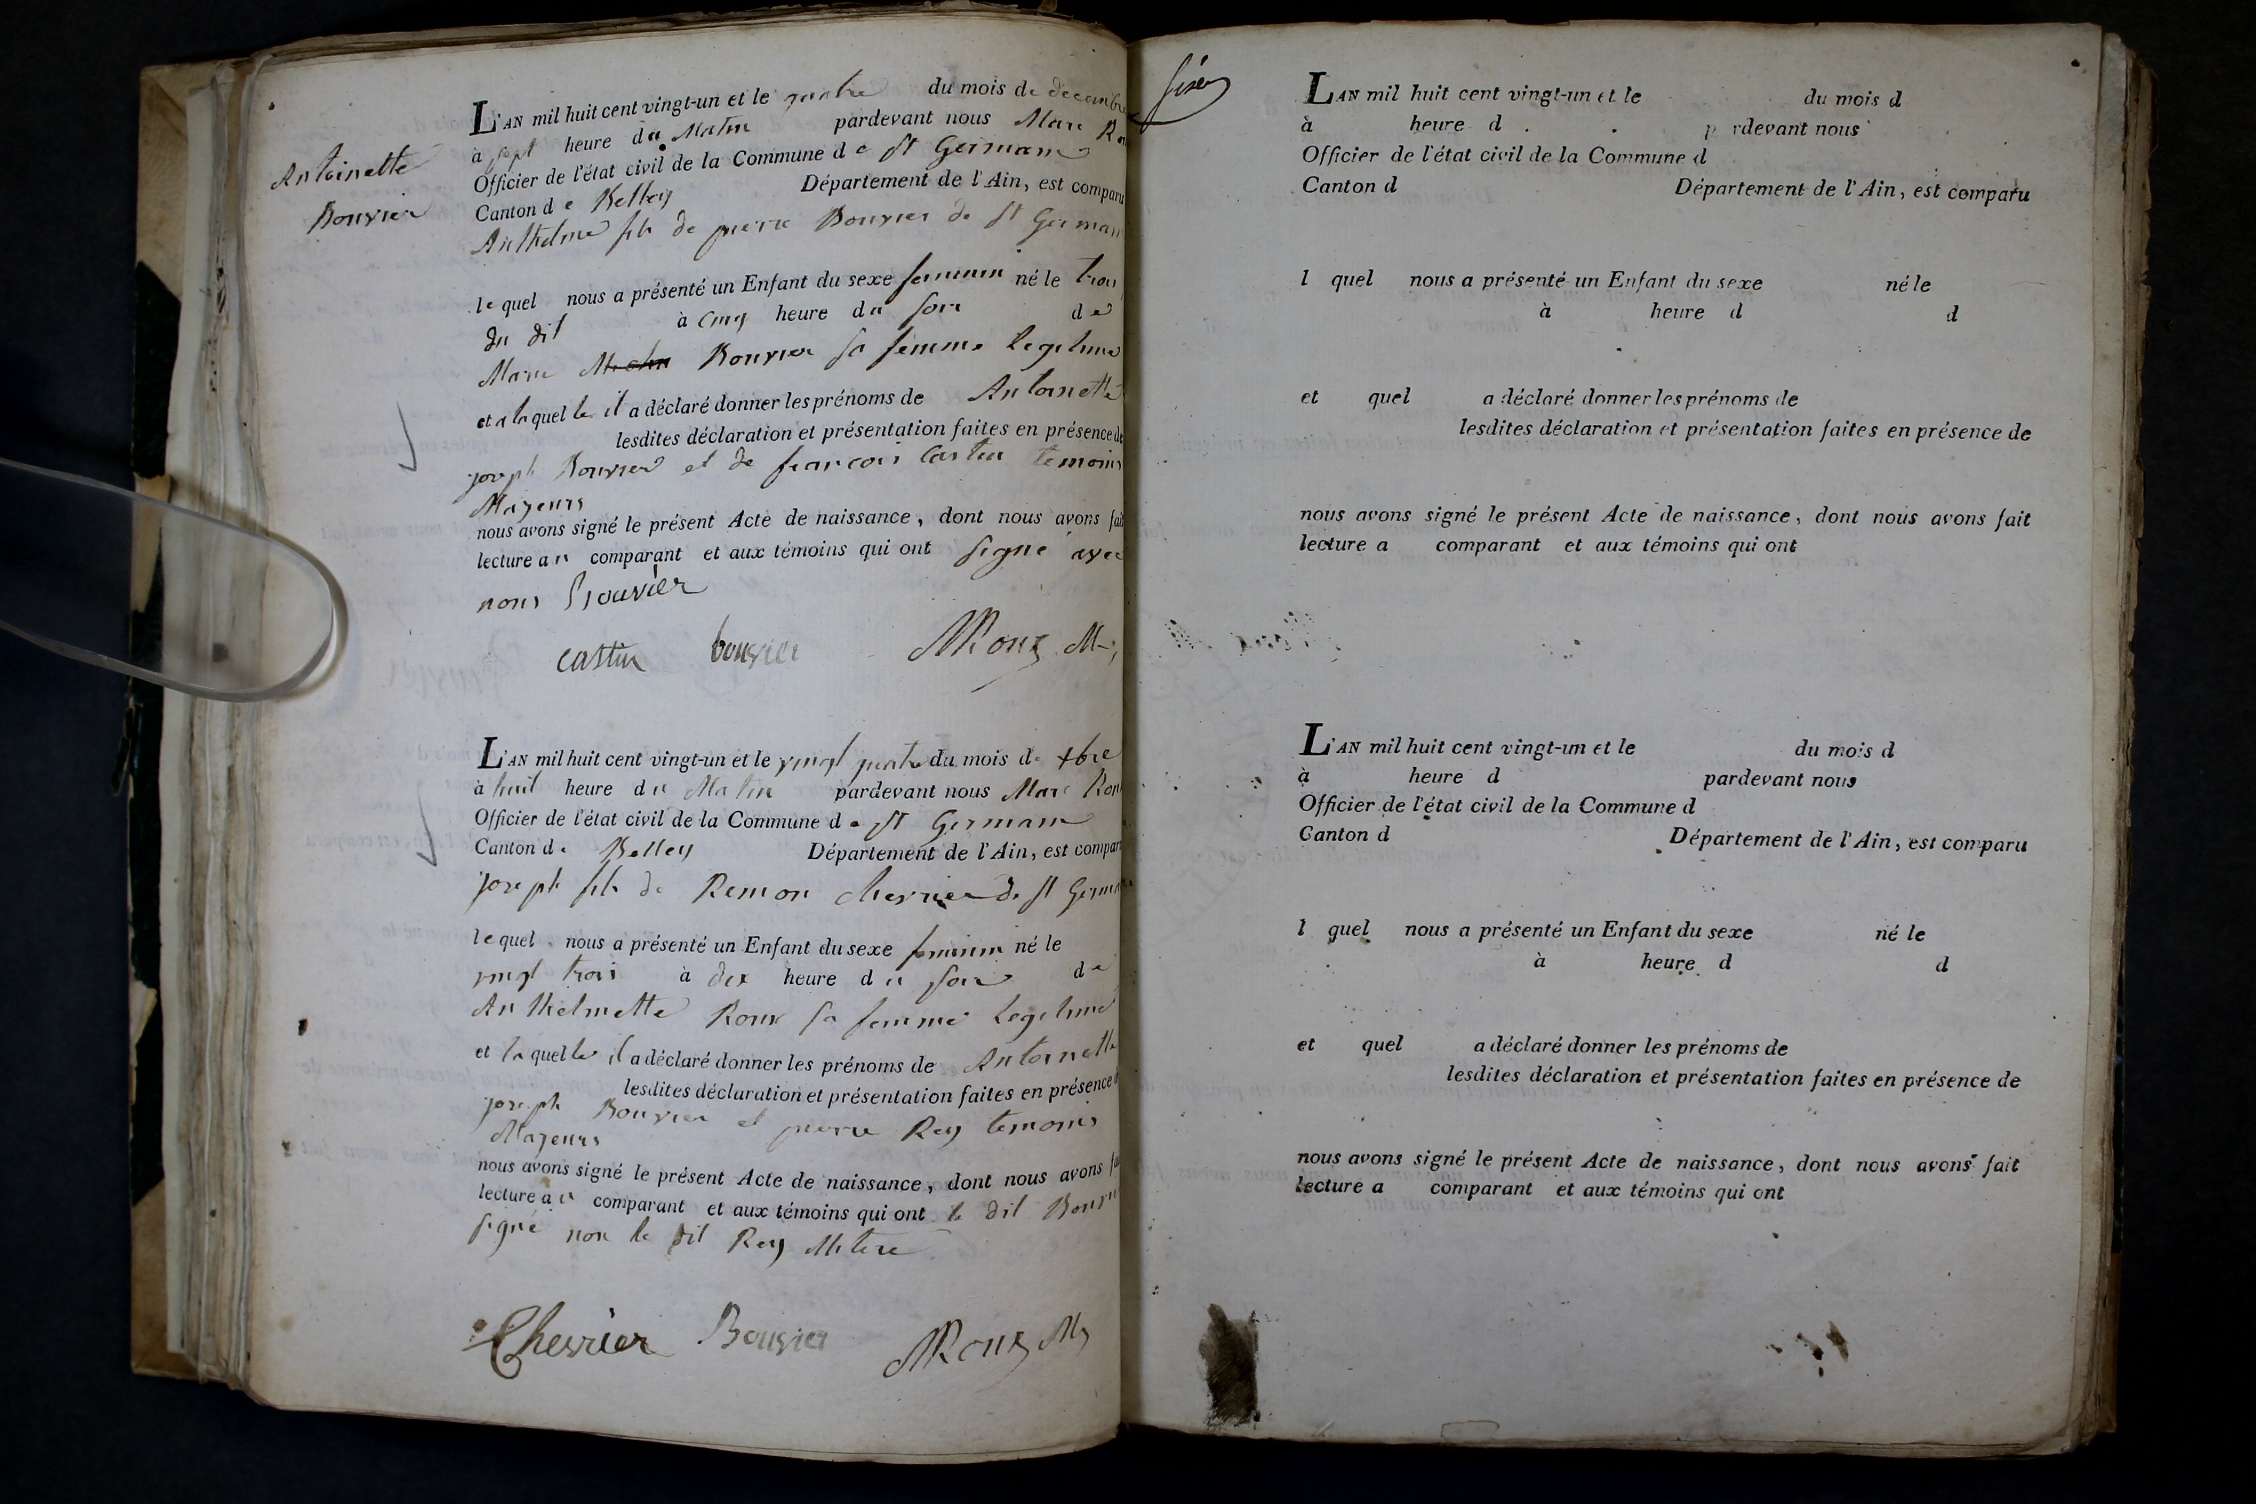 Antoinette
Bouvier
L'AN mil huit cent vingt-un et le quatre du mois de decembre
à sept heure du Matin pardevant nous Marc
Officier de l'état civil de la Commune de St Germain
Canton de Belley Département de l'Ain, est comparu
Anthelme fils de pierre Bouvier de St Germain
lequel nous a présenté un Enfant du sexe feminin né le trois
du dit à cinq heure du soir de
Marie Bouvier sa femme Legitime
et a laquelle il a déclaré donner les prénoms de Antoinette
lesdites déclaration et présentation faites en présence de
joseph Bouvier et de francois Castin temoins
Majeurs
nous avons signé le présent Acte de naissance, dont nous avons fait
lecture au comparant et aux témoins qui ont signé avec
nous Bouvier
castin bouvier MRoux M
L'AN mil huit cent vingt-un et le vingt quatre du mois de xbre
à huit heure du Matin pardevant nous Marc Roux
Officier de l'état civil de la Commune de St Germain
Canton de Belley Département de l'Ain, est compar
joseph fils de Remon chevrier de St Germa
lequel nous a présenté un Enfant du sexe feminin né le
vingt trois à dix heure du soir de
Anthelmette Roux sa femme Legitime
et laquelle il a déclaré donner les prénoms de Antoinette
lesdites déclaration et présentation faites en présence d
joseph Bouvier et pierre Rey temoins
Majeurs
nous avons signé le présent Acte de naissance, dont nous avons fai
lecture au comparant et aux témoins qui ont le dit Bouvier
signé non le dit Rey
Chevrier Bouvier MRoux M
L'AN mil huit cent vingt-un et le du mois d
à heure d p rdevant nous
Officier de l'état civil de la Commune d
Canton d Département de l'Ain, est comparu
l quel nous a présenté un Enfant du sexe né le
à heure d d
et quel a déclaré donner les prénoms de
lesdites déclaration et présentation faites en présence de
nous avons signé le présent Acte de naissance, dont nous avons fait
lecture a comparant et aux témoins qui ont
L'AN mil huit cent vingt-un et le du mois d
à heure d pardevant nous
Officier de l'état civil de la Commune d
Canton d Département de l'Ain, est comparu
l quel nous a présenté un Enfant du sexe né le
à heure d d
et quel a déclaré donner les prénoms de
lesdites déclaration et présentation faites en présence de
nous avons signé le présent Acte de naissance, dont nous avons fait
lecture a comparant et aux témoins qui ont